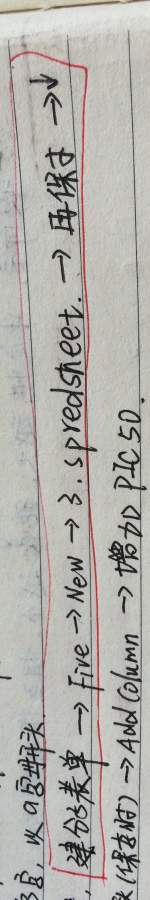 3官，以a官能开头
建分子表单 → Five → New → 3. spredsheet. → 再保存 → ↓
(保存时) → Add Column → 增加 PIC50.